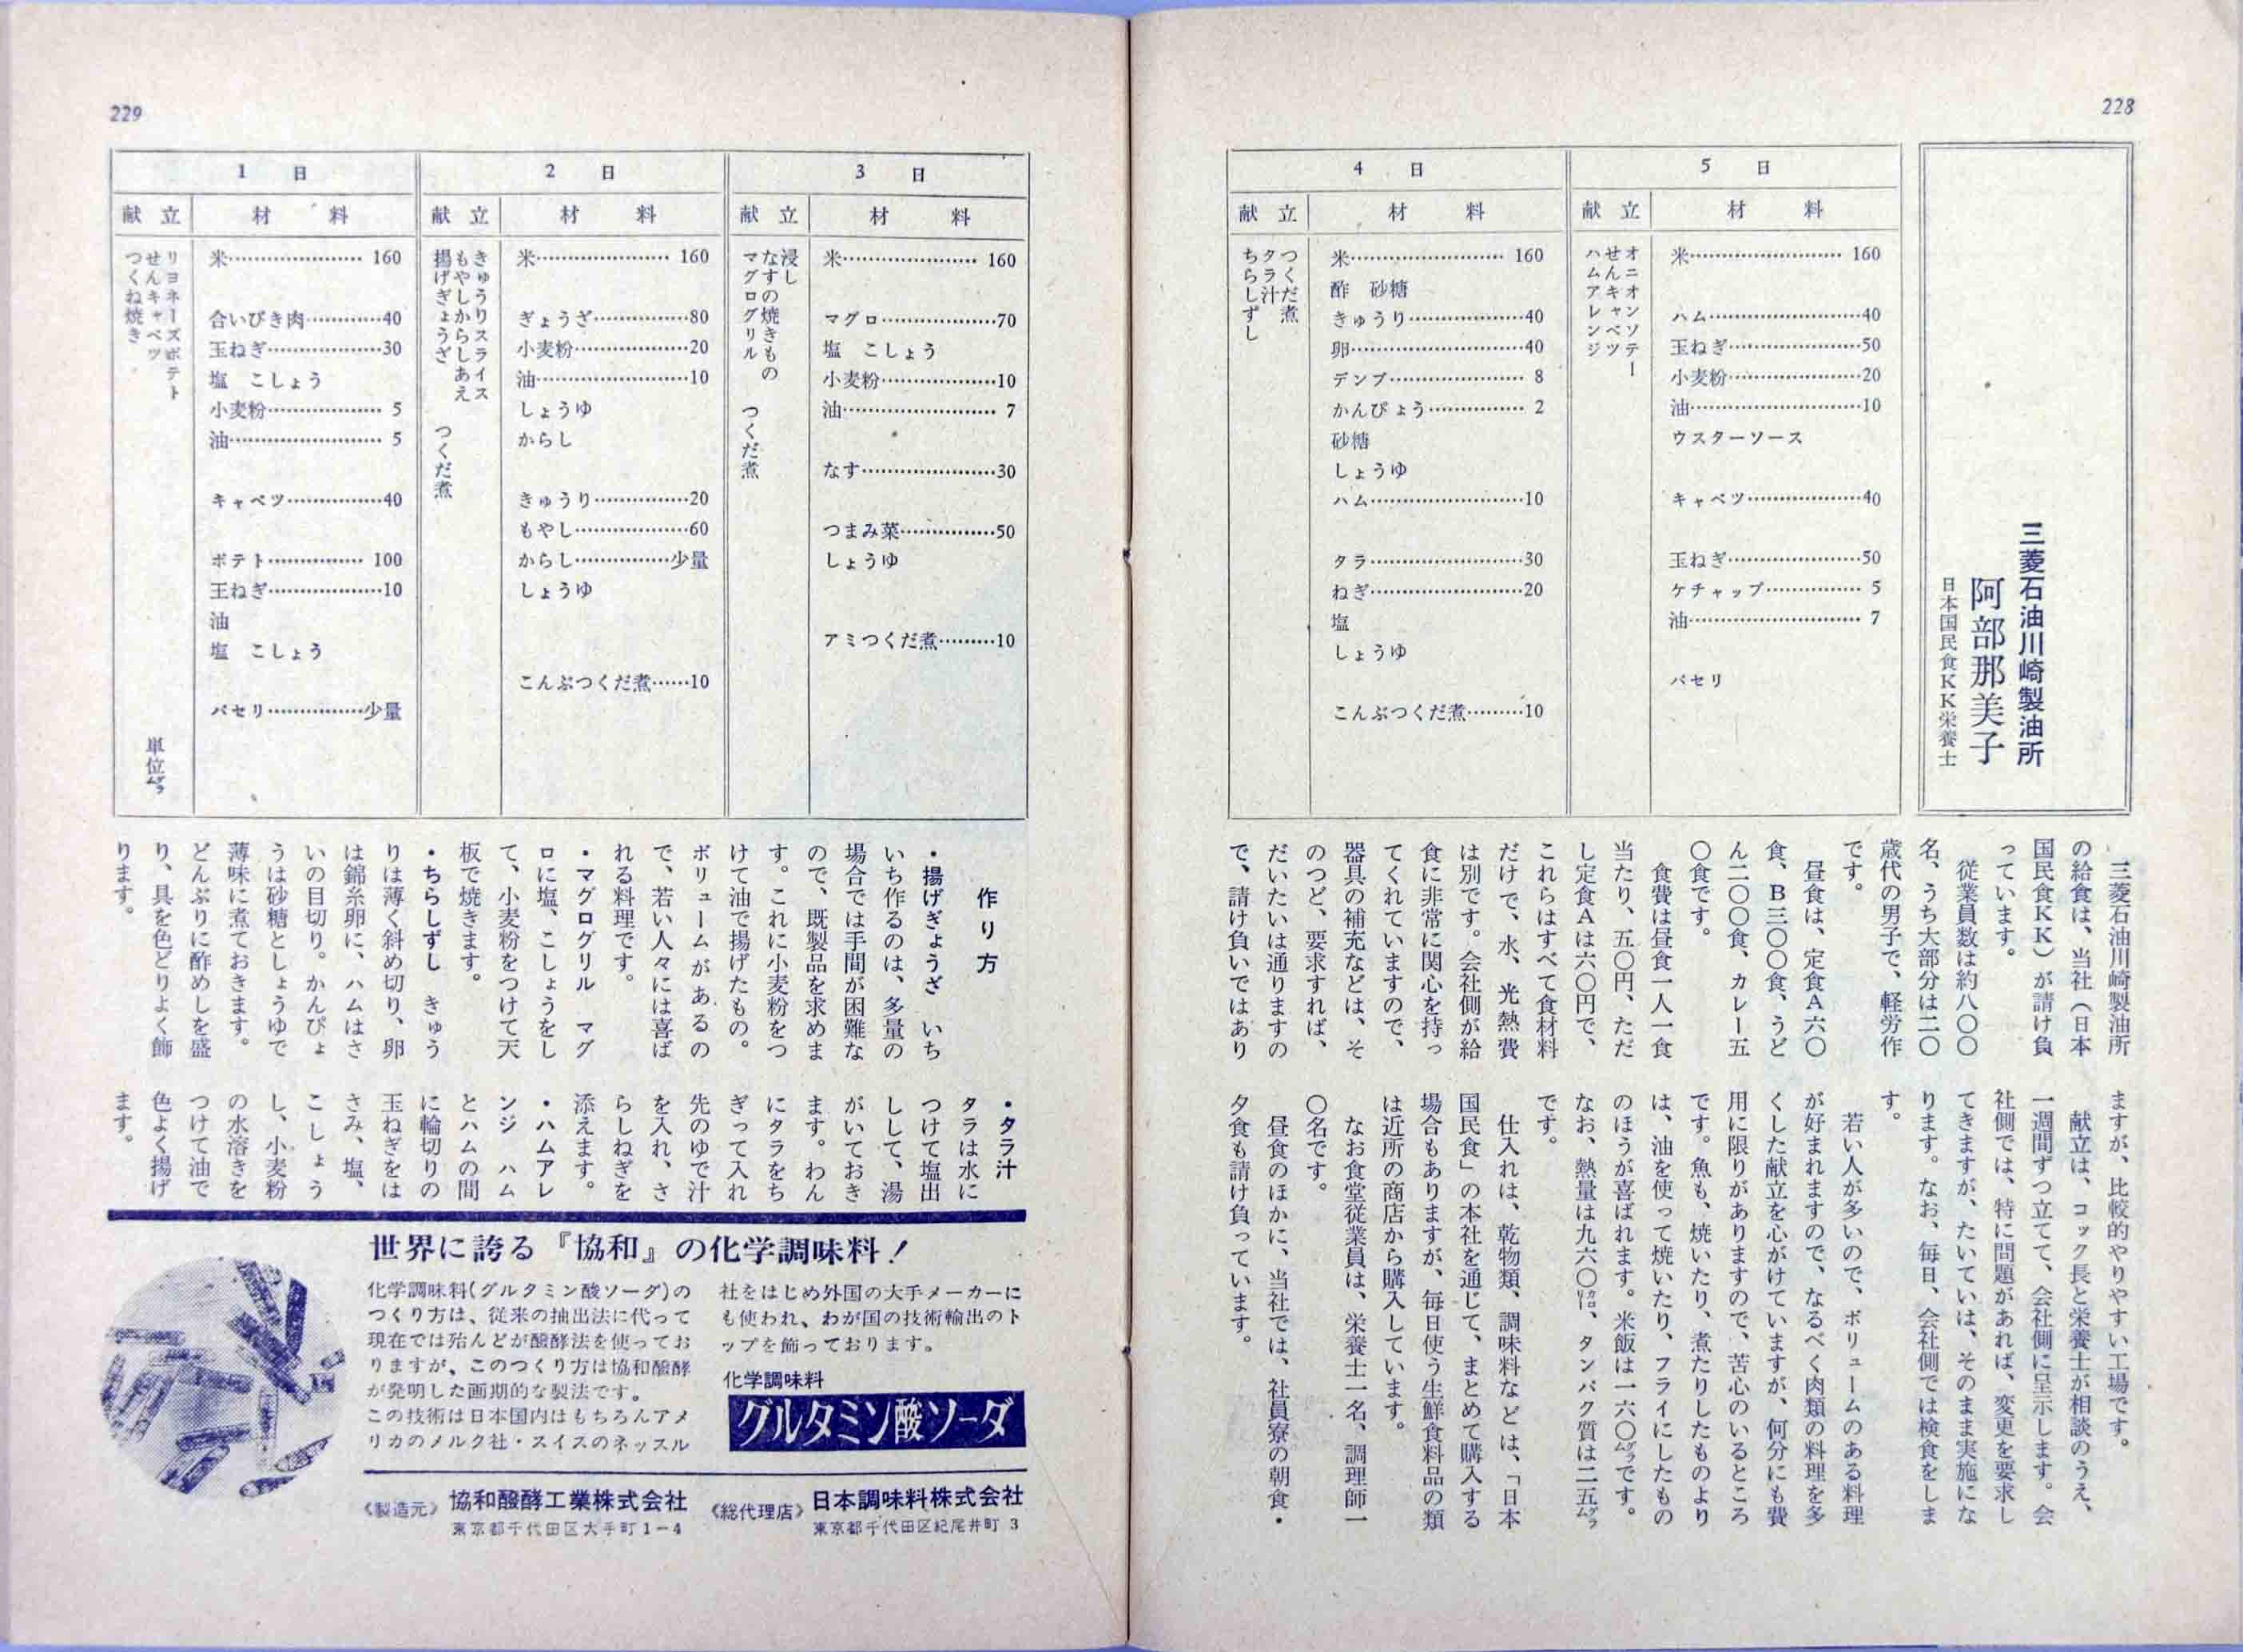 228
三菱石油川崎製油所
阿部那美子
日本国民食KK栄養士
5 日
献立
材料
オニオンソテー
せんキャベツ
ハムアレンジ
米 160
ハム 40
玉ねぎ 50
小麦粉 20
油 10
ウスターソース
キャベツ 40
玉ねぎ 50
ケチャップ 5
油 7
パセリ
4 日
献立
材料
つくだ煮
タラ汁
ちらしずし
米 160
酢 砂糖
きゅうり 40
卵 40
デンブ 8
かんぴょう 2
砂糖
しょうゆ
ハム 10
タラ 30
ねぎ 20
塩
しょうゆ
こんぶつくだ煮 10
三菱石油川崎製油所
の給食は、当社(日本
国民食KK)が請け負
っています。
従業員数は約八〇〇
名、うち大部分は二〇
歳代の男子で、軽労作
です。
昼食は、定食A六〇
食、B三〇〇食、うど
ん二〇〇食、カレー五
〇食です。
食費は昼食一人一食
当たり、五〇円、ただ
し定食Aは六〇円で、
これらはすべて食材料
だけで、水、光熱費
は別です。会社側が給
食に非常に関心を持っ
てくれていますので、
器具の補充などは、そ
のつど、要求すれば、
だいたいは通りますの
で、請け負いではあり
ますが、比較的やりやすい工場です。
献立は、コック長と栄養士が相談のうえ、
一週間ずつ立てて、会社側に呈示します。会
社側では、特に問題があれば、変更を要求し
てきますが、たいていは、そのまま実施にな
ります。なお、毎日、会社側では検食をしま
す。
若い人が多いので、ボリュームのある料理
が好まれますので、なるべく肉類の料理を多
くした献立を心がけていますが、何分にも費
用に限りがありますので、苦心のいるところ
です。魚も、焼いたり、煮たりしたものより
は、油を使って焼いたり、フライにしたもの
のほうが喜ばれます。米飯は一六〇グラムです。
なお、熱量は九六〇カロリー、タンパク質は二五グラム
です。
仕入れは、乾物類、調味料などは、「日本
国民食」の本社を通じて、まとめて購入する
場合もありますが、毎日使う生鮮食料品の類
は近所の商店から購入しています。
なお食堂従業員は、栄養士一名、調理師一
〇名です。
昼食のほかに、当社では、社員寮の朝食・
夕食も請け負っています。
229
3 日
献立
材料
浸し
なすの焼きもの
マグログリル
つくだ煮
米 160
マグロ 70
塩 こしょう
小麦粉 10
油 7
なす 30
つまみ菜 50
しょうゆ
アミつくだ煮 10
2 日
献立
材料
きゅうりスライス
もやしからしあえ
揚げぎょうざ
つくだ煮
米 160
ぎょうざ 80
小麦粉 20
油 10
しょうゆ
からし
きゅうり 20
もやし 60
からし 少量
しょうゆ
こんぶつくだ煮 10
1 日
献立
材料
リヨネーズポテト
せんキャベツ
つくね焼き
単位グラム
米 160
合いびき肉 40
玉ねぎ 30
塩 こしょう
小麦粉 5
油 5
キャベツ 40
ポテト 100
玉ねぎ 10
油
塩 こしょう
パセリ 少量
作り方
・揚げぎょうざ いち
いち作るのは、多量の
場合では手間が困難な
ので、既製品を求めま
す。これに小麦粉をつ
けて油で揚げたもの。
ボリュームがあるの
で、若い人々には喜ば
れる料理です。
・マグログリル マグ
ロに塩、こしょうをし
て、小麦粉をつけて天
板で焼きます。
・ちらしずし きゅう
りは薄く斜め切り、卵
は錦糸卵に、ハムはさ
いの目切り。かんぴょ
うは砂糖としょうゆで
薄味に煮ておきます。
どんぶりに酢めしを盛
り、具を色どりよく飾
ります。
・タラ汁
タラは水に
つけて塩出
しして、湯
がいておき
ます。わん
にタラをち
ぎって入れ
先のゆで汁
を入れ、さ
らしねぎを
添えます。
・ハムアレ
ンジ ハム
とハムの間
に輪切りの
玉ねぎをは
さみ、塩、
こしょう
し、小麦粉
の水溶きを
つけて油で
色よく揚げ
ます。
世界に誇る『協和』の化学調味料!
化学調味料(グルタミン酸ソーダ)の
つくり方は、従来の抽出法に代って
現在では殆んどが醱酵法を使ってお
りますが、このつくり方は協和醱酵
が発明した画期的な製法です。
この技術は日本国内はもちろんアメ
リカのメルク社・スイスのネッスル
社をはじめ外国の大手メーカーに
も使われ、わが国の技術輸出のト
ップを飾っております。
化学調味料
グルタミン酸ソーダ
《製造元》 協和醱酵工業株式会社
東京都千代田区大手町1-4
《総代理店》 日本調味料株式会社
東京都千代田区紀尾井町 3